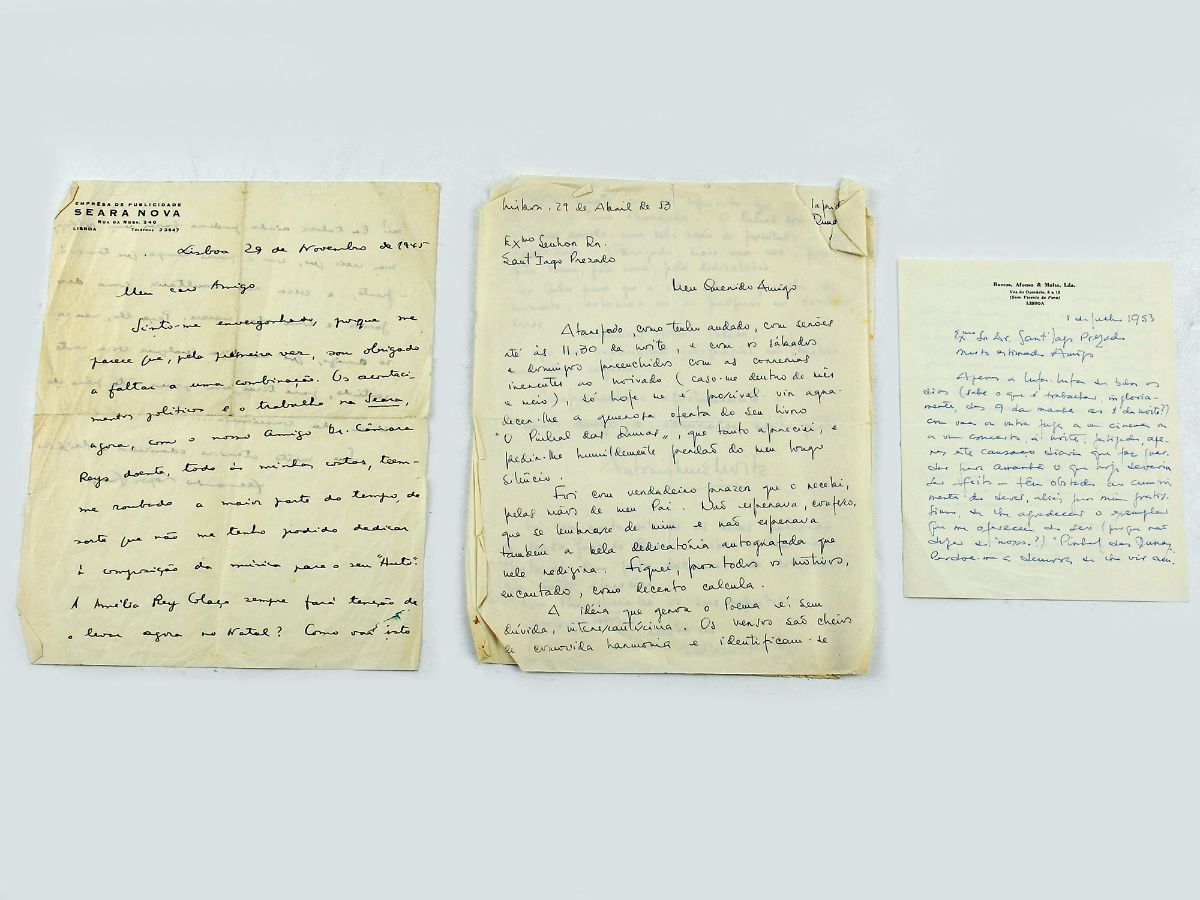 EMPRÊSA DE PUBLICIDADE
SEARA NOVA
RUA DA ROSA, 240
LISBOA TELEFONE 23647
Lisboa 29 de Novembro de 1945
Meu caro Amigo
Sinto-me envergonhado, porque me
parece que, pela primeira vez, sou obrigado
a faltar a uma combinação. Os aconteci-
mentos políticos e o trabalho na Seara,
agora, com o nosso Amigo Dr. Câmara
Reys doente, todo às minhas costas, teem-
me roubado a maior parte do tempo, de
sorte que não me tenho podido dedicar
à composição da música para o seu "Auto".
A Amélia Rey Colaço sempre fará tenção de
o levar agora no Natal? Como vai isto
Lisboa, 29 de Abril de 53
Exmo Senhor Dr.
Sant'Iago Prezado
Meu Querido Amigo
Atarefado, como tenho andado, com serões
até às 11,30 da noite, e com os sábados
e domingos preenchidos com as correrias
inerentes ao noivado (caso-me dentro de mês
e meio), só hoje me é possível vir agra-
decer-lhe a generosa oferta do seu livro
"O Pinhal das Dunas", que tanto apreciei, e
pedir-lhe humildemente perdão do meu longo
silêncio.
Foi com verdadeiro prazer que o recebi,
pelas mãos de meu Pai. Não esperava, confesso,
que se lembrasse de mim e não esperava
também a bela dedicatória autografada que
nele redigira. Fiquei, por todos os motivos,
encantado, como decerto calcula.
A idéia que gerou o Poema é, sem
dúvida, interessantíssima. Os versos são cheios
de comovida harmonia e identificam-se
Ramos, Afonso & Moita, Lda.
Voz do Operário, 8 a 16
(Sam Vicente de Fora)
LISBOA
1 de julho 1953
Exmo Sr. Dr. Sant'Iago Prezado
meu estimado Amigo
Apenas a luta
dias (sabe o que é trabalhar, inglória-
mente, das 9 da manhã às 8 da noite?)
com uma ou outra fuga a um cinema ou
a um concerto, à noite
cansaço diário que faz guar-
dar para amanhã o que hoje deveria
ser feito — têm obstado ao cumpri-
mento do dever, aliás por mim
de lhe agradecer o exemplar
que me ofereceu do seu (porque não
dizer de "nosso"?) "Pinhal das Dunas"
Perdoe-me a demora